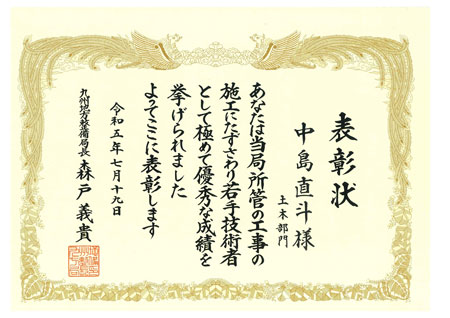 表彰状
土木部門
中島直斗様
あなたは当局所管の工事の
施工にたずさわり若手技術者
として極めて優秀な成績を
挙げられました
よってここに表彰します
令和五年七月十九日
九州地方整備局長 森戸義貴